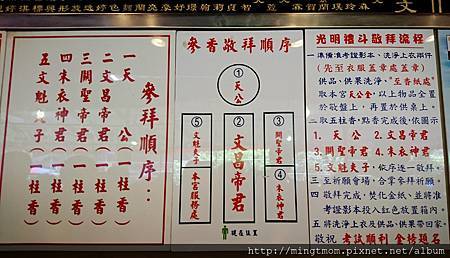 參拜順序：
一天公 一柱香
二文昌帝君 一柱香
三關聖帝君 一柱香
四朱衣神君 一柱香
五文魁夫子 一柱香
參香敬拜順序
①
天公
⑤
文魁夫子
本宮服務處
②
文昌帝君
③
關聖帝君
④
朱衣神君
現在位置
光明禮斗敬拜流程
一準備准考證影本、洗淨上衣兩件
(先至衣服蓋章處蓋章)
供品、供果洗淨、"至香紙處"
取本宮天公金，以上物品全置
於敬盤上，再置於供桌上。
二取五柱香，點香完成後，依圖示
1.天公 2.文昌帝君
3.關聖帝君 4.朱衣神君
5.文魁夫子，依序逐一敬拜。
三至祈願會場，合掌參拜祈願。
四敬拜完成，焚化金紙，並將准
考證影本投入紅色放置箱內。
五將洗淨上衣及供品、供果帶回家。
敬祝 考試順利 金榜題名
http://mingtmom.pixnet.net/album